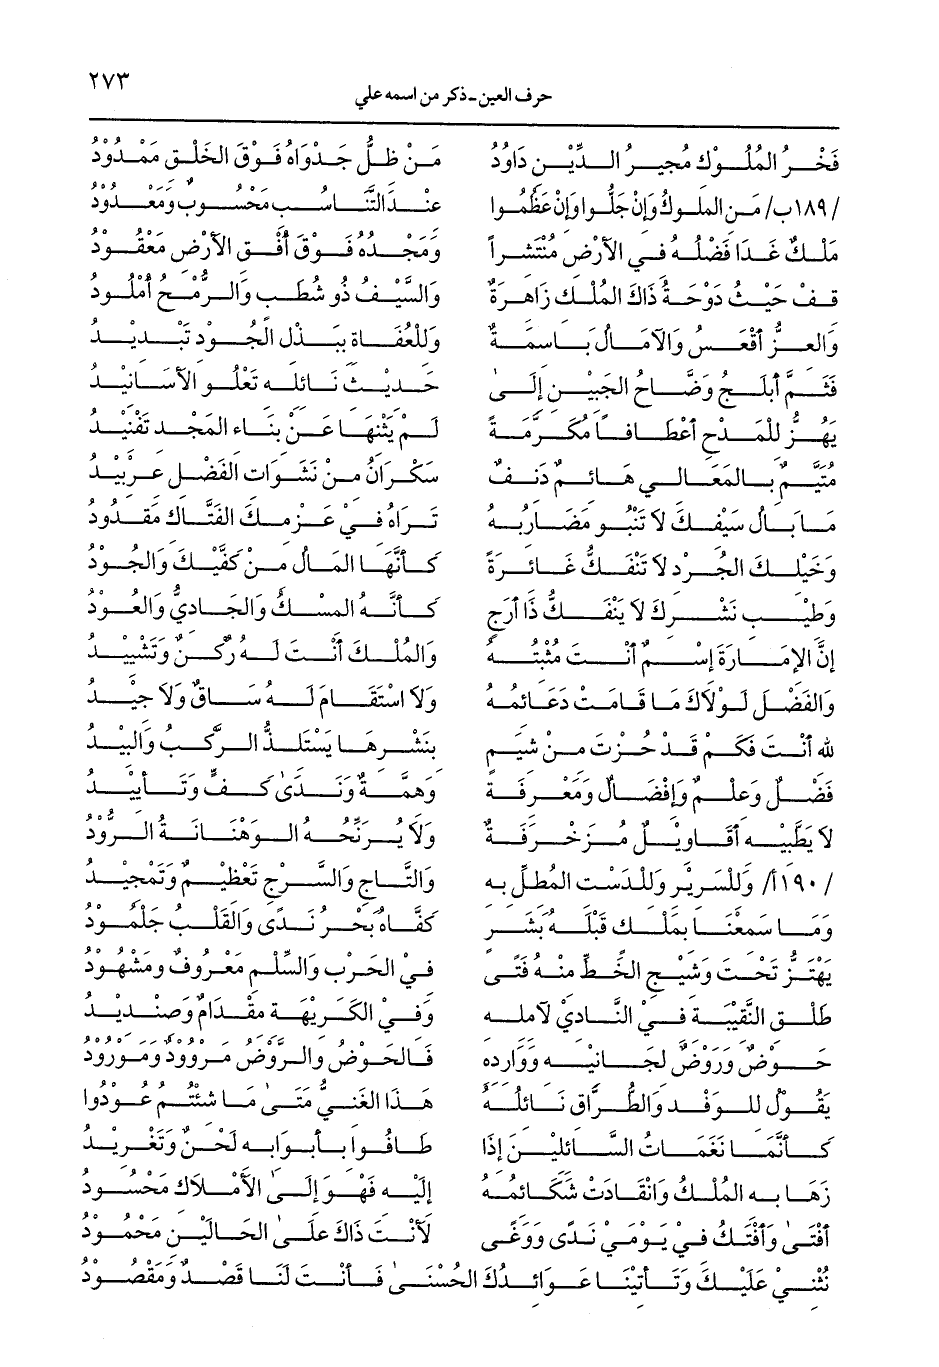 ٢٧٣
حرف العين ـ ذكر من اسمه علي
فَخْرُ المُلُوكِ مُجِيرُ الدِّينِ دَاوُدُ مَنْ ظِلُّ جَدْوَاهُ فَوْقَ الخَلْقِ مَمْدُودُ
/١٨٩ب/ مَنِ المُلوكُ وَإِنْ جَلُّوا وَإِنْ عَظُمُوا عِنْدَ التَّنَاسُبِ مَحْسُوبٌ وَمَعْدُودُ
مَلْكٌ غَدَا فَضْلُهُ فِي الأَرْضِ مُنْتَشِراً وَمَجْدُهُ فَوْقَ أُفْقِ الأَرْضِ مَعْقُودُ
قِفْ حَيْثُ دَوْحَةُ ذَاكَ المُلْكِ زَاهِرَةٌ وَالسَّيْفُ ذُو شُطَبٍ وَالرُّمْحُ أُمْلُودُ
وَالعِزُّ أَقْعَسُ وَالآمَالُ بَاسِمَةٌ وَلِلْعُفَاةِ بِبَذْلِ الجُودِ تَبْدِيدُ
فَثَمَّ أَبْلَجُ وَضَّاحُ الجَبِينِ إِلَى حَدِيثِ نَائِلِهِ تَعْلُو الأَسَانِيدُ
يَهُزُّ لِلْمَدْحِ أَعْطَافاً مُكَرَّمَةً لَمْ يَثْنِهَا عَنْ بِنَاءِ المَجْدِ تَفْنِيدُ
مُتَيَّمٌ بِالمَعَالِي هَائِمٌ دَنِفٌ سَكْرَانُ مِنْ نَشَوَاتِ الفَضْلِ عِرْبِيدُ
مَا بَالُ سَيْفِكَ لاَ تَنْبُو مَضَارِبُهُ تُرَاهُ فِي عَزْمِكَ الفَتَّاكِ مَقْدُودُ
وَخَيْلُكَ الجُرْدُ لاَ تَنْفَكُّ غَائِرَةً كَأَنَّهَا المَالُ مِنْ كَفَّيْكَ وَالجُودُ
وَطِيبُ نَشْرِكَ لاَ يَنْفَكُّ ذَا أَرَجٍ كَأَنَّهُ المِسْكُ وَالجَادِيُّ وَالعُودُ
إِنَّ الإِمَارَةَ إِسْمٌ أَنْتَ مُثْبِتُهُ وَالمُلْكَ أَنْتَ لَهُ رُكْنٌ وَتَشْيِيدُ
وَالفَضْلُ لَوْلاَكَ مَا قَامَتْ دَعَائِمُهُ وَلاَ اسْتَقَامَ لَهُ سَاقٌ وَلاَ جِيدُ
لله أَنْتَ فَكَمْ قَدْ حُزْتَ مِنْ شِيَمٍ بِنَشْرِهَا يَسْتَلِذُّ الرَّكْبُ وَالبِيدُ
فَضْلٌ وَعِلْمٌ وَإِفْضَالٌ وَمَعْرِفَةٌ وَهِمَّةٌ وَنَدًى كَفٌّ وَتَأْيِيدُ
لاَ يَطَّبِيهِ أَقَاوِيلٌ مُزَخْرَفَةٌ وَلاَ يُرَنِّحُهُ الوَهْنَانَةُ الرُّودُ
/١٩٠أ/ وَلِلسَّرِيرِ وَلِلدَّسْتِ المُطِلِّ بِهِ وَالتَّاجِ وَالسَّرْجِ تَعْظِيمٌ وَتَمْجِيدُ
وَمَا سَمِعْنَا بِمَلْكٍ قَبْلَهُ بَشَرٍ كَفَّاهُ بَحْرُ نَدًى وَالقَلْبُ جُلْمُودُ
يَهْتَزُّ تَحْتَ وَشِيجِ الخَطِّ مِنْهُ فَتًى فِي الحَرْبِ وَالسِّلْمِ مَعْرُوفٌ وَمَشْهُودُ
طَلْقُ النَّقِيبَةِ فِي النَّادِي لآمِلِهِ وَفِي الكَرِيهَةِ مِقْدَامٌ وَصِنْدِيدُ
حَوْضٌ وَرَوْضٌ لِجَانِيهِ وَوَارِدِهِ فَالحَوْضُ وَالرَّوْضُ مَرْوُودٌ وَمَوْرُودُ
يَقُولُ لِلْوَفْدِ وَالطُّرَّاقِ نَائِلُهُ هَذَا الغَنِيُّ مَتَى مَا شِئْتُمُ عُودُوا
كَأَنَّمَا نَغَمَاتُ السَّائِلِينَ إِذَا طَافُوا بِأَبْوَابِهِ لَحْنٌ وَتَغْرِيدُ
زَهَا بِهِ المُلْكُ وَانْقَادَتْ شَكَائِمُهُ إِلَيْهِ فَهْوَ إِلَى الأَمْلاَكِ مَحْسُودُ
أَفْتَى وَأَفْتَكُ فِي يَوْمَيْ نَدًى وَوَغًى لأَنْتَ ذَاكَ عَلَى الحَالَيْنِ مَحْمُودُ
نُثْنِي عَلَيْكَ وَتَأْتِينَا عَوَائِدُكَ الحُسْنَى فَأَنْتَ لَنَا قَصْدٌ وَمَقْصُودُ